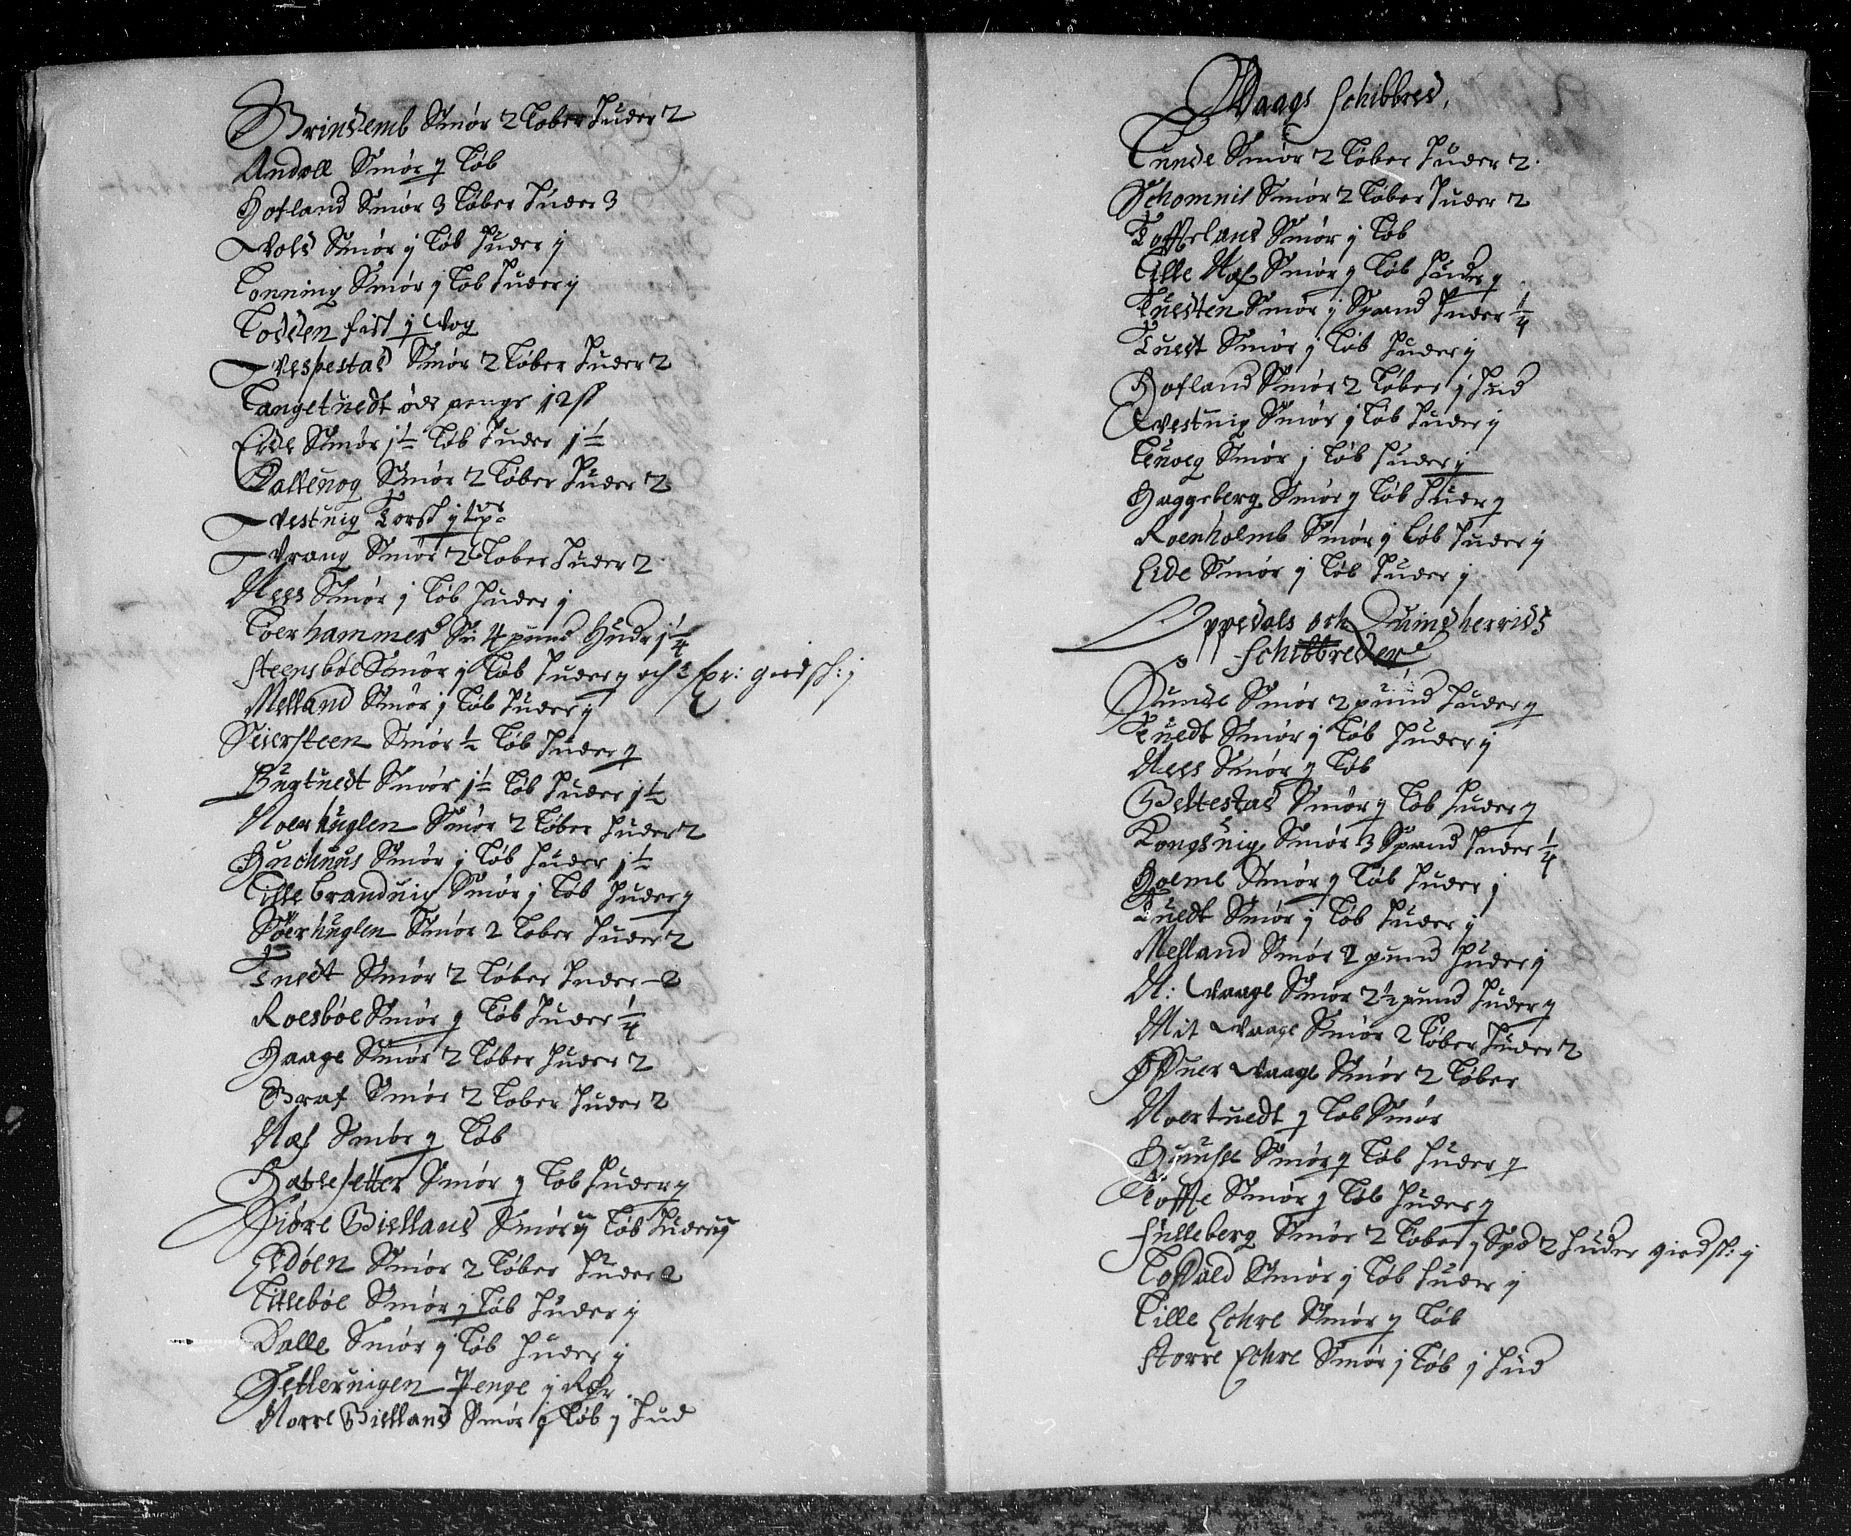 Grindemb Smør 2 Løber Huder 2
Andall Smør j Løb
Hofland Smør 3 Løber Huder 3
Wold Smør j Løb Huder j
Lonning Smør j Løb Huder j
Lodden fisk j Vog
Wespestad Smør 2 Løber Huder 2
Langetuedt øde penge 12 ß
Eide Smør j½ Løb Huder j½
Dallenog Smør 2 Løber Huder 2
Westuig Torsk j
Wrang Smør 2 Løber Huder 2
Nees Smør j Løb Huder j
Toerhammer Sm 4 pund Hudr j¼
Steensbøe Smør j Løb Huder j och giedsk: j
Melland Smør j Løb Huder j
Seiersteen Smør ½ Løb Huder j
Bugtuedt Smøer j½ Løb Huder j½
Noerhuglen Smør 2 Løber Huder 2
Huchnus Smør j Løb Huder j½
Lille branduig Smør j Løb Huder j
Søerhuglen Smør 2 Løber Huder 2
Tuedt Smør 2 Løber Huder 2
Roesbøe Smør j Løb Huder ¼
Haage Smør 2 Løber Huder 2
Graf Smør 2 Løber Huder 2
Næs Smør j Løb
Hatlesetter Smør j Løb Huder j
Fiøre Bielland Smør ij Løb Huder ij
Eldøen Smør 2 Løber Huder 2
Litlebøe Smør j Løb Huder j
Dalle Smør j Løb Huder j
Hetleruigen Penge j Rdr
Norre Bielland Smør j Løb j Hud
Waags Schibbred,
Lunde Smør 2 Løber Huder 2
Schomnis Smør 2 Løber Huder 2
Toffteland Smør j Løb
Lille Næs Smør j Løb Huder j
Tuesten Smør j Spand Huder ¼
Tuedt Smør j Løb Huder j
Hofland Smør 2 Løber j Hud
Westuig Smør j Løb Huder j
Teuoeg Smør j Løb Huder j
Haggeberg Smør j Løb Huder j
Roenholmb Smør j Løb Huder j
Eide Smør j Løb Huder j
Oppedals och Quindherrids
Schibbreder
Sunde Smør 2 pund Huder j
Tuedt Smør j Løb Huder j
Nees Smør j Løb
Geltestad Smør j Løb Huder j
Kongsuig Smør 3 Spand Huder ¼
Holme Smør j Løb Huder j
Tuedt Smør j Løb Huder j
Mehland Smør 2 pund Huder j
N: Waage Smør 2½ pund Huder j
Mit Waage Smør 2 Løber Huder 2
Øffuer Waage Smør 2 Løber
Noertuedt j Løb Smør
Huuse Smør j Løb Huder j
Toffte Smør j Løb Huder j
Fulleberg Smør 2 Løber j Spd 2 Huder giedsk: j
Loffald Smør j Løb Huder j
Lille Echre Smør j Løb
Storre Echre Smør j Løb j Hud